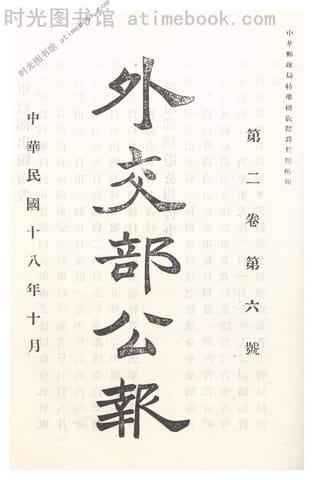 时光图书馆 atimebook.com
中華郵政局特准掛號認爲新聞紙類
第二卷第六號
外交部公報
中華民國十八年十月